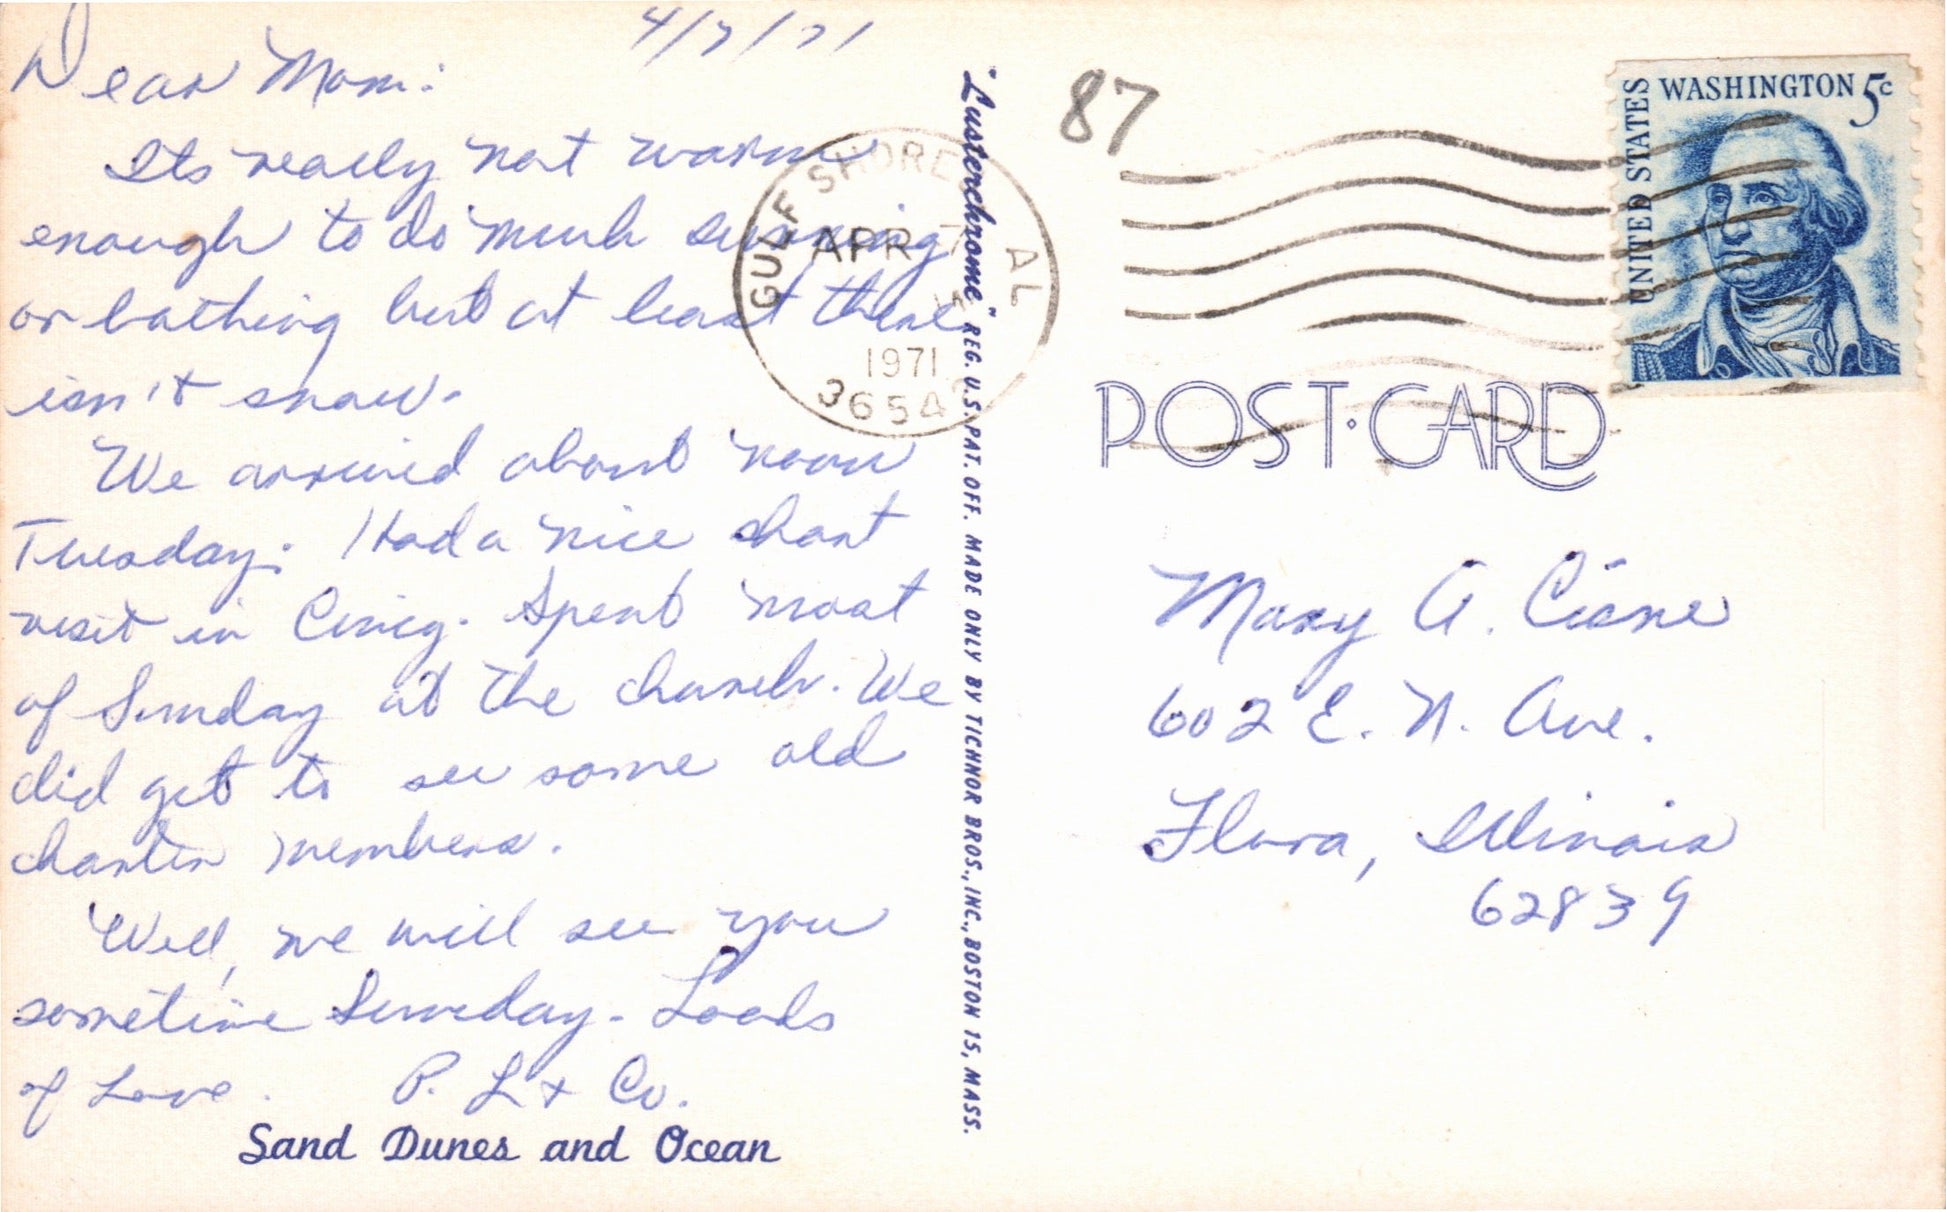 4/7/71
Dear Mom:
Its really not warm
enough to do much sunning
or bathing but at least there
isn't snow.
We arrived about noon
Tuesday. Had a nice short
visit in Cincy. Spent most
of Sunday at the church. We
did get to see some old
charter members.
Well, we will see you
sometime Sunday. Loads
of Love. P. L & Co.
Sand Dunes and Ocean
"Lusterchrome" REG. U.S. PAT. OFF. MADE ONLY BY TICHNOR BROS., INC., BOSTON 15, MASS.
GULF SHORES AL
APR 7
1971
3654
87
UNITED STATES
WASHINGTON 5c
POST·CARD
Mary A.
602 E. N. Ave.
Flora, Illinois
62839